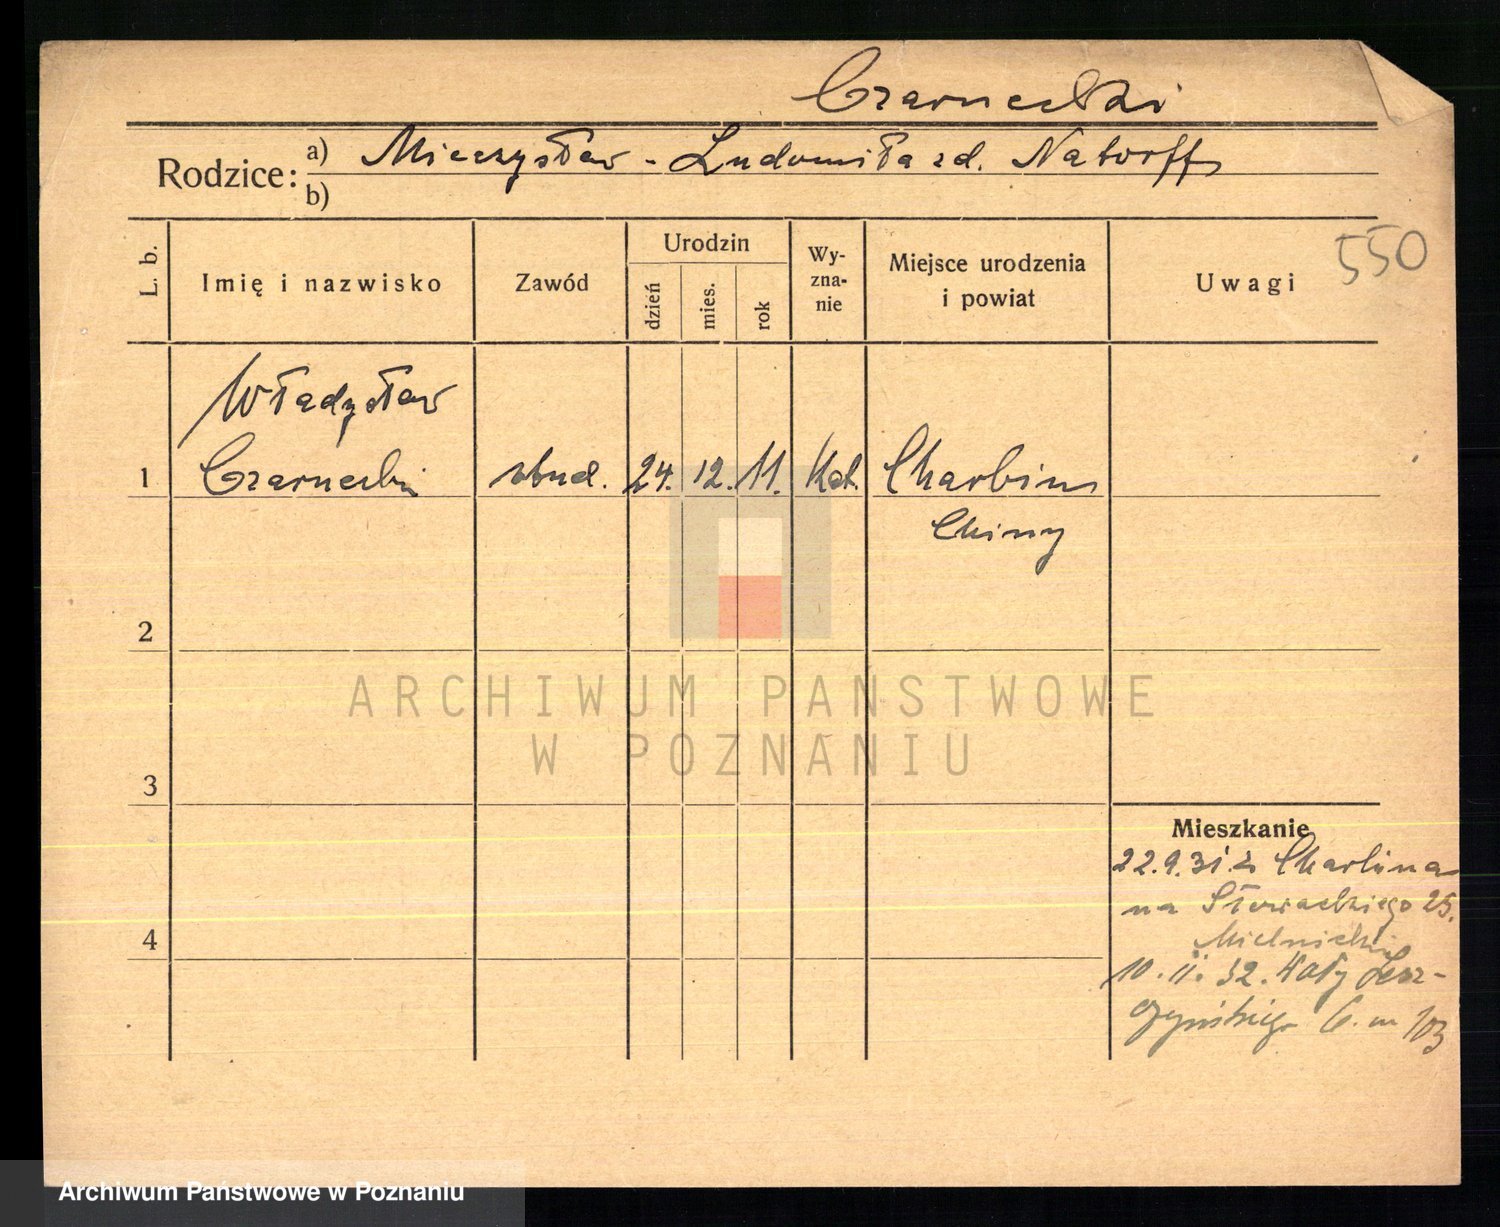 Czarnecki
Rodzice: a) Mieczysław - Ludomiła zd. Natorff
b)
550
L. b.
Imię i nazwisko
Zawód
Urodzin
dzień
mies.
rok
Wy-
zna-
nie
Miejsce urodzenia
i powiat
Uwagi
Władysław
1 Czarnecki stud. 24. 12. 11. Kat. Charbin
Chiny
2
ARCHIWUM PAŃSTWOWE
W POZNANIU
3
Mieszkanie
22.9.31. z Charbina
na Słowackiego 25.
Mielnicki
4
10.II.32. Wały Lesz-
czyńskiego 6. m 103
Archiwum Państwowe w Poznaniu